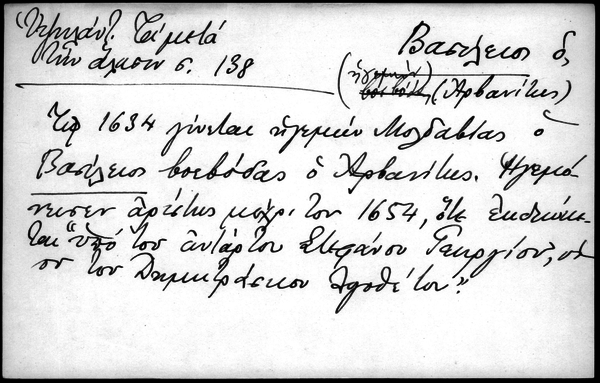 Ὑψηλάντ. Τὰ μετὰ
τὴν ἅλωσιν σ. 138
Βασίλειος ὁ
(ἡγεμὼν)
βοεβόδας (Ἀρβανίτης)
Τῷ 1634 γίνεται ἡγεμὼν Μολδαβίας ὁ
Βασίλειος βοεβόδας ὁ Ἀρβανίτης. Ἡγεμό-
νευσεν ἄριστος μέχρι τοῦ 1654, ὅτε ἐκδιώκε-
ται "ὑπὸ τοῦ ἀντάρτου Στεφάνου Γεωργίου,
τοῦ Δημητράσκου λογοθέτου".